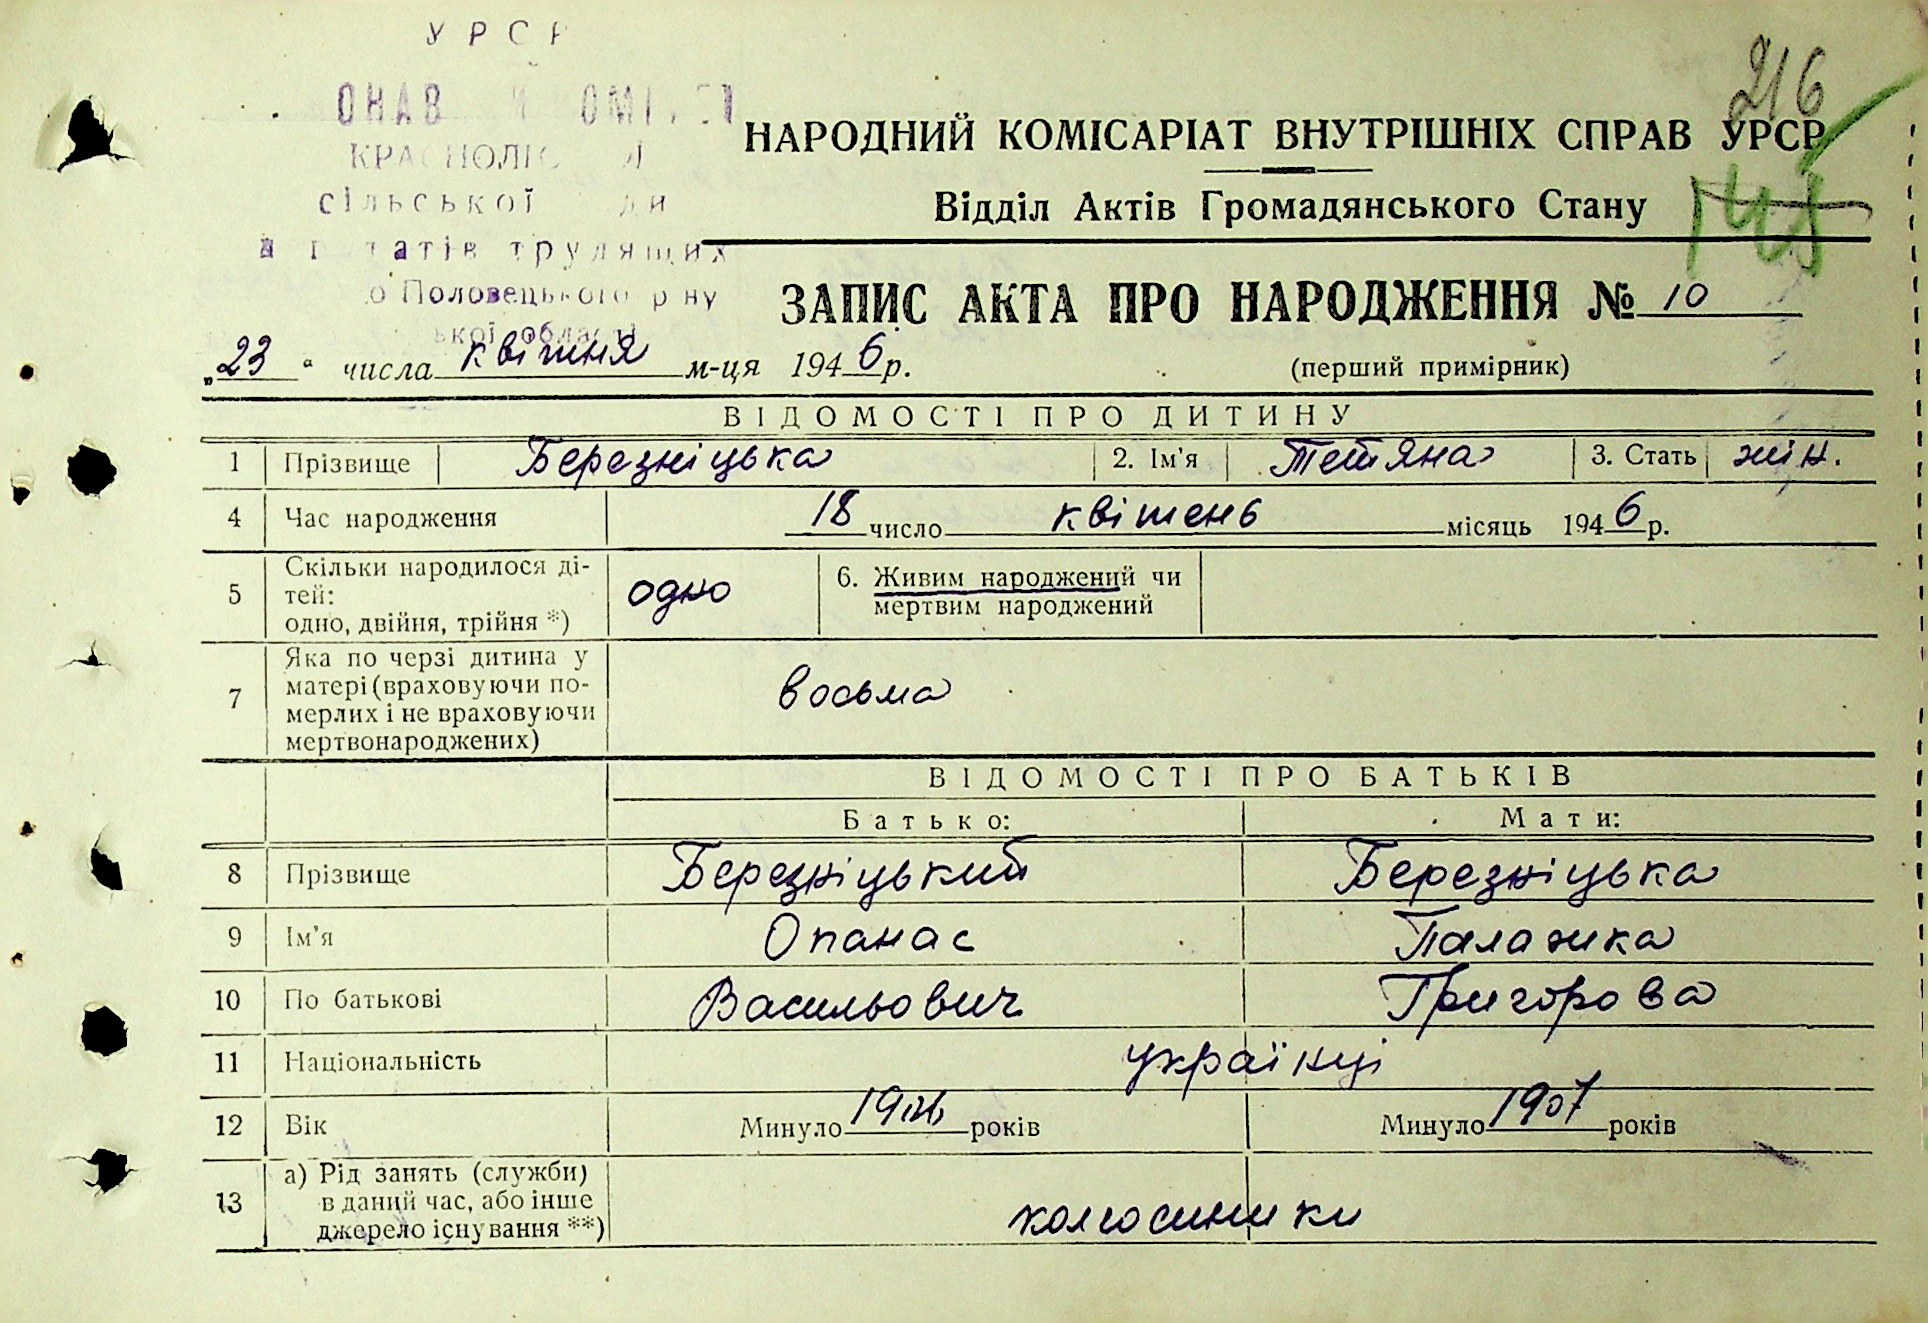 УРСР
216
НАРОДНИЙ КОМІСАРІАТ ВНУТРІШНІХ СПРАВ УРСР
сільської
Відділ Актів Громадянського Стану
трудящих
Половецького р ну
ЗАПИС АКТА ПРО НАРОДЖЕННЯ № 10
області
„23“ числа квітня м-ця 1946 р.
(перший примірник)
ВІДОМОСТІ ПРО ДИТИНУ
1 Прізвище Березніцька 2. Ім'я Тетяна 3. Стать жін.
4 Час народження 18 число квітень місяць 1946 р.
5 Скільки народилося ді-
тей:
одно, двійня, трійня *) одно 6. Живим народжений чи
мертвим народжений
7 Яка по черзі дитина у
матері (враховуючи по-
мерлих і не враховуючи
мертвонароджених) восьма
ВІДОМОСТІ ПРО БАТЬКІВ
Батько: Мати:
8 Прізвище Березніцький Березніцька
9 Ім'я Опанас Палажка
10 По батькові Васильович Григорова
11 Національність українці
12 Вік Минуло років Минуло 1907 років
13 а) Рід занять (служби)
в даний час, або інше
джерело існування **) колгоспники